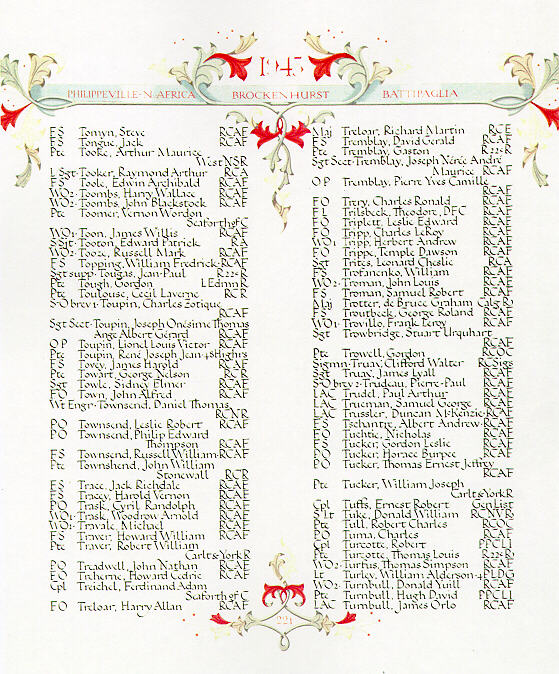 1943
PHILIPPEVILLE-N. AFRICA BROCKENHURST BATTIPAGLIA
FS Tomyn, Steve RCAF
FS Tongue, Jack RCAF
Pte Tooke, Arthur Maurice
West NSR
L Sgt·Tooker, Raymond Arthur RCA
FS Toole, Edwin Archibald RCAF
WO2·Toombs, Harry Wallace RCAF
WO2·Toombs, John Blackstock RCAF
Pte Toomer, Vernon Wordon
Seaforth of C
WO1·Toon, James Willis RCAF
S Sjt·Tooton, Edward Patrick RA
WO2·Tooze, Russell Mark RCAF
FS Topping, William Fredrick·RCAF
Sgt supp·Tougas, Jean-Paul R22eR
Pte Tough, Gordon L Edmn R
Pte Toulouse, Cecil Laverne RCR
S/O brev 1·Toupin, Charles Zotique
RCAF
Sgt Sect·Toupin, Joseph Onésime Thomas
Ange Albert Gérard RCAF
OP Toupin, Lionel Louis Victor RCAF
Pte Toupin, René Joseph Jean·48Highrs
FS Tovey, James Harold RCAF
Pte Towart, George Nelson RCR
Sgt Towle, Sidney Elmer RCAF
FO Town, John Alfred RCAF
Wt Engr·Townsend, Daniel Thomas
RCNR
PO Townsend, Leslie Robert RCAF
PO Townsend, Philip Edward
Thompson RCAF
FS Townsend, Russell William·RCAF
Pte Townshend, John William
Stonewall RCR
FS Trace, Jack Richdale RCAF
FS Tracey, Harold Vernon RCAF
PO Trask, Cyril Randolph RCAF
WO1·Trask, Woodrow Arnold RCAF
WO1·Travale, Michael RCAF
FS Traver, Howard William RCAF
Pte Traver, Robert William
Carlt&York R
PO Treadwell, John Nathan RCAF
FO Treherne, Howard Cedric RCAF
Cpl Treichel, Ferdinand Adam
Seaforth of C
FO Treloar, Harry Allan RCAF
Maj Treloar, Richard Martin RCE
FS Tremblay, David Gerald RCAF
Pte Tremblay, Gaston R22eR
Sgt Sect·Tremblay, Joseph Nérée André
Maurice RCAF
OP Tremblay, Pierre Yves Camille
RCAF
FO Trery, Charles Ronald RCAF
FL Trilsbeck, Theodore, DFC RCAF
FO Triplett, Leslie Edward RCAF
FO Tripp, Charles LeRoy RCAF
WO1 Tripp, Herbert Andrew RCAF
FO Trippe, Temple Dawson RCAF
Sgt Trites, Leonard Cheslie RCA
FS Trofanenko, William RCAF
WO2·Troman, John Louis RCAF
FS Troman, Samuel Robert RCAF
Maj Trotter, de Bruce Graham Calg R
FS Troutbeck, George Roland RCAF
WO1·Trovillo, Frank Leroy RCAF
Sgt Trowbridge, Stuart Urquhart
RCAF
Pte Trowell, Gordon RCOC
Sigmn·Truax, Clifford Walter RCSigs
Sgt Truax, James Lyall RCAF
S/O brev 2·Trudeau, Pierre-Paul RCAF
LAC Trudel, Paul Arthur RCAF
LAC Trueman, Samuel George RCAF
LAC Trussler, Duncan McKenzie·RCAF
FS Tschantre, Albert Andrew·RCAF
FO Tuchtie, Nicholas RCAF
FS Tucker, Gordon Leslie RCAF
PO Tucker, Horace Burpee RCAF
PO Tucker, Thomas Ernest Jeffrey
RCAF
Pte Tucker, William Joseph
Carlt&York R
Cpl Tuffs, Ernest Robert Gen List
S Lt Tuke, Donald William RCNVR
Pte Tull, Robert Charles RCOC
PO Tuma, Charles RCAF
Cpl Turcotte, Robert PPCLI
Pte Turcotte, Thomas Louis R22eR
WO2·Turfus, Thomas Simpson RCAF
Lt Turley, William Alderson·4PLDG
WO2·Turnbull, Donald Yuill RCAF
Pte Turnbull, Hugh David PPCLI
LAC Turnbull, James Orlo RCAF
221